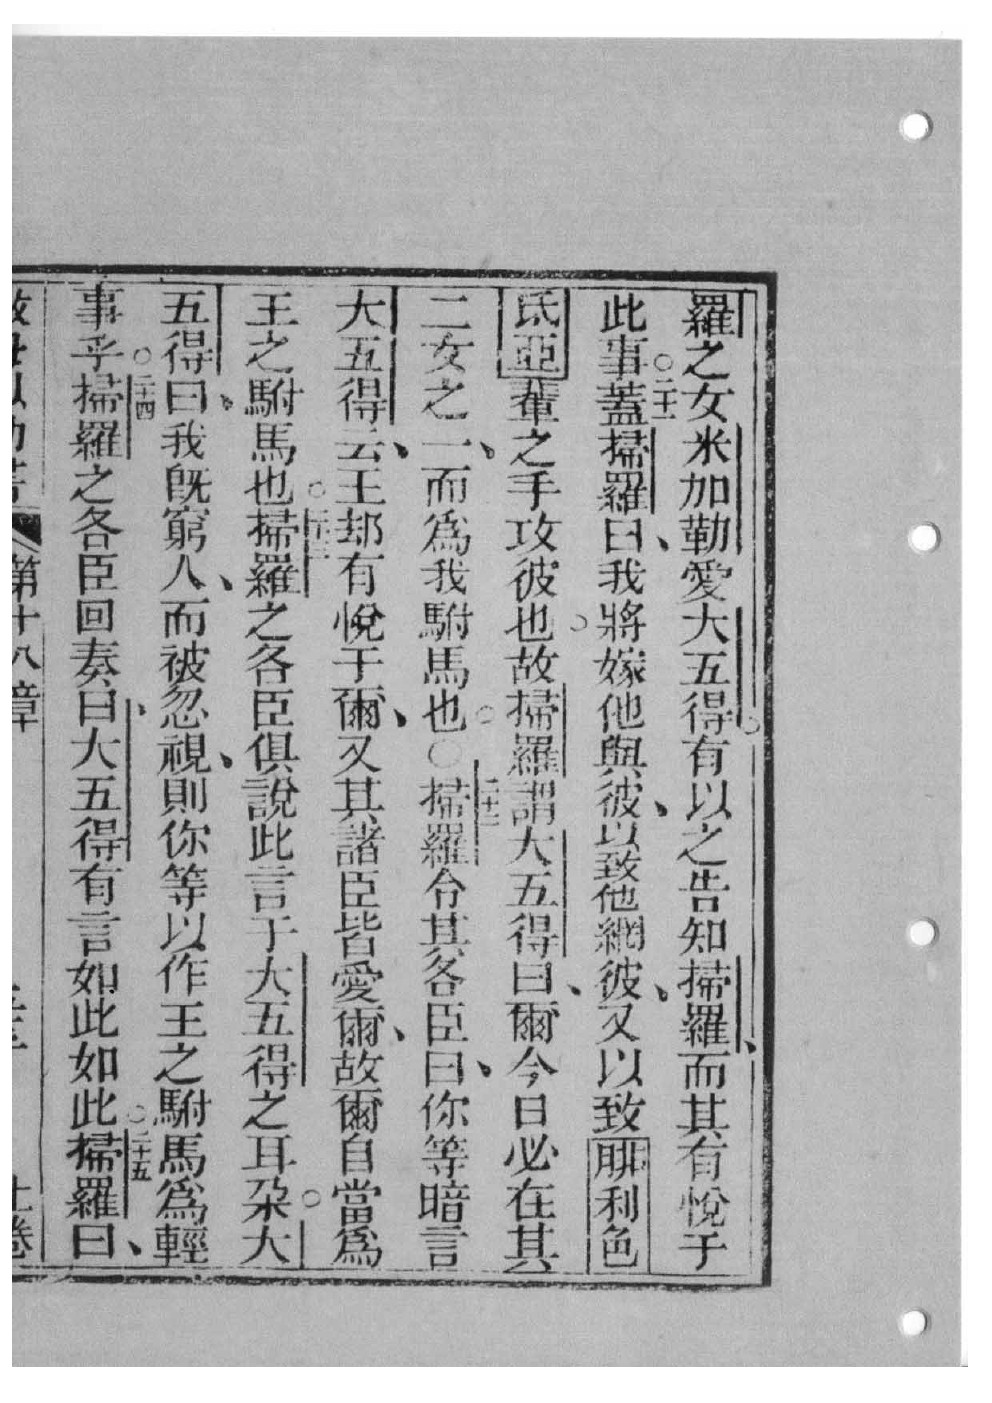 羅之女米加勒愛大五得。有以之告知掃羅、而其有悅于
此事。二十一蓋掃羅曰、我將嫁他與彼、以致他網彼、又以致腓利色
氏亞輩之手攻彼也。故掃羅謂大五得曰、爾今日必在其
二女之一、而爲我駙馬也。○二十二掃羅令其各臣曰、你等暗言
大五得云、王却有悅于爾、又其諸臣皆愛爾、故爾自當爲
王之駙馬也。二十三掃羅之各臣俱說此言于大五得之耳朶。大
五得曰、我旣窮人、而被忽視、則你等以作王之駙馬爲輕
事乎。二十四掃羅之各臣回奏曰、大五得有言如此如此。二十五掃羅曰、
第十八章